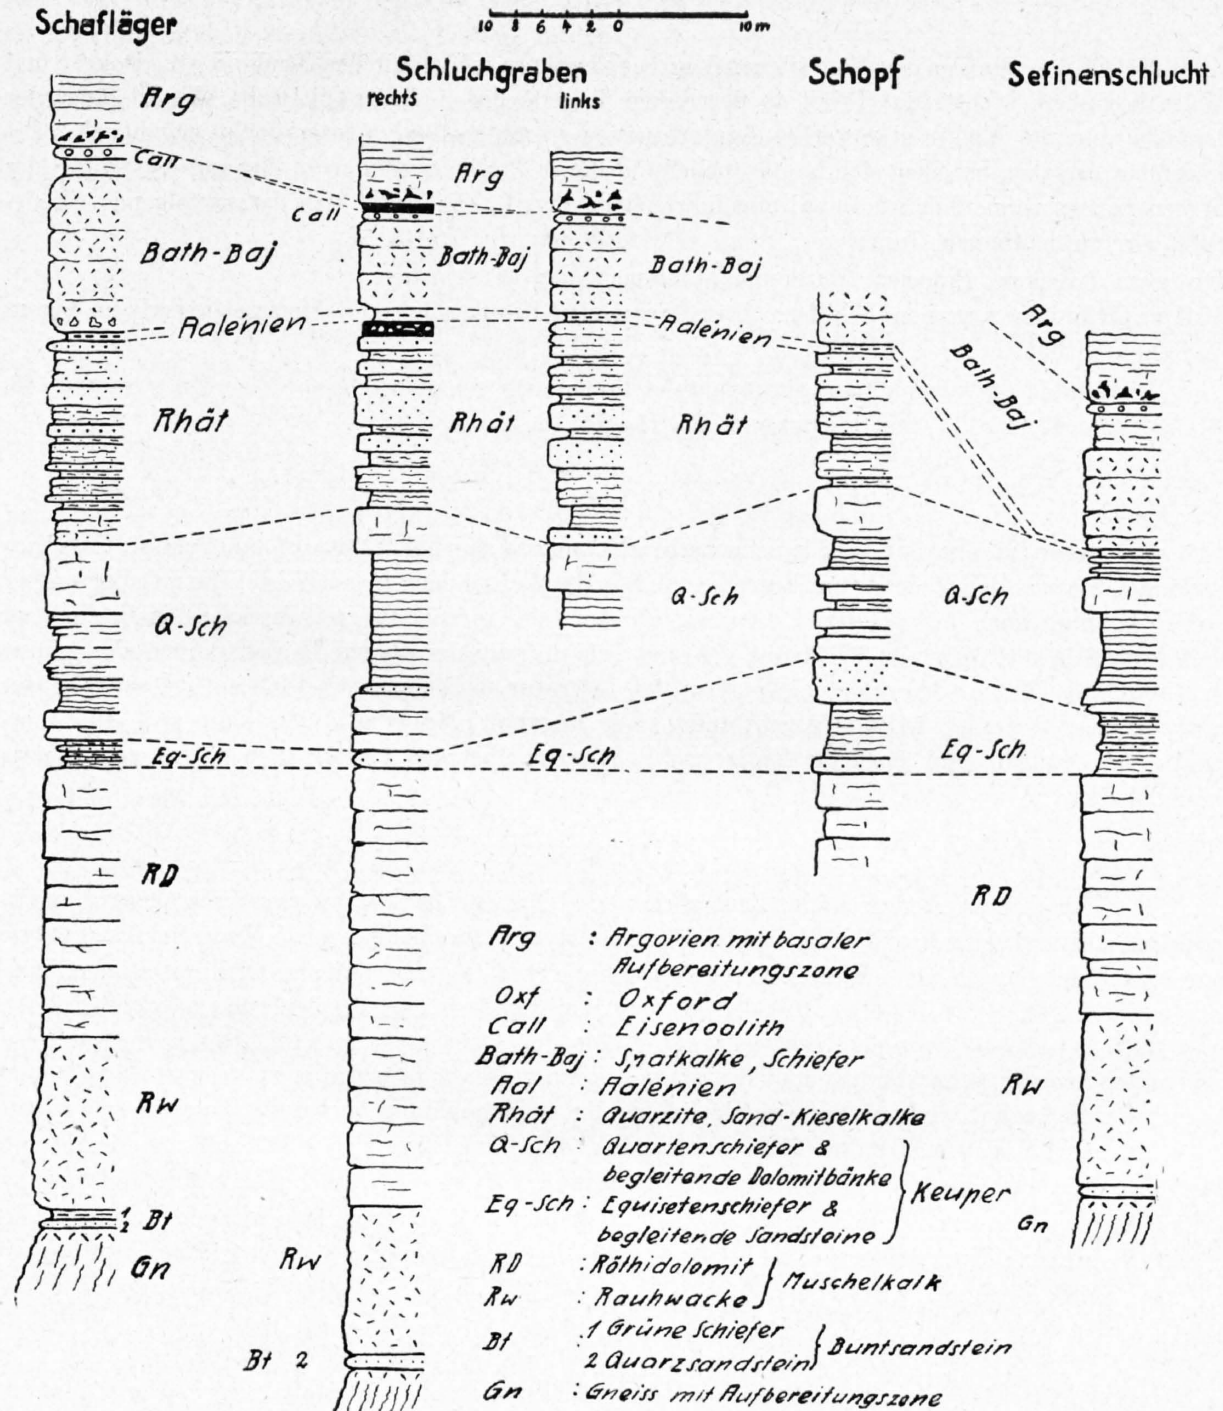 Schafläger
10 8 6 4 2 0 10 m
Schluchgraben
rechts
links
Schopf
Sefinenschlucht
Arg
Call
Bath-Baj
Aalénien
Rhät
Q-Sch
Eq-Sch
RD
Rw
1
2
Bt
Gn
Arg
Call
Bath-Baj
Rhät
Bath-Baj
Aalénien
Rhät
Q-Sch
Eq-Sch
Rw
Bt 2
Arg
Bath-Baj
Q-Sch
Eq-Sch
RD
Rw
Gn
Arg : Argovien mit basaler
Aufbereitungszone
Oxf : Oxford
Call : Eisenoolith
Bath-Baj : Spatkalke, Schiefer
Aal : Aalénien
Rhät : Quarzite, Sand-Kieselkalke
Q-Sch : Quartenschiefer &
begleitende Dolomitbänke
Eq-Sch : Equisetenschiefer &
begleitende Sandsteine
Keuper
RD : Röthidolomit
Rw : Rauhwacke
Muschelkalk
Bt : 1 Grüne Schiefer
2 Quarzsandstein
Buntsandstein
Gn : Gneiss mit Aufbereitungszone